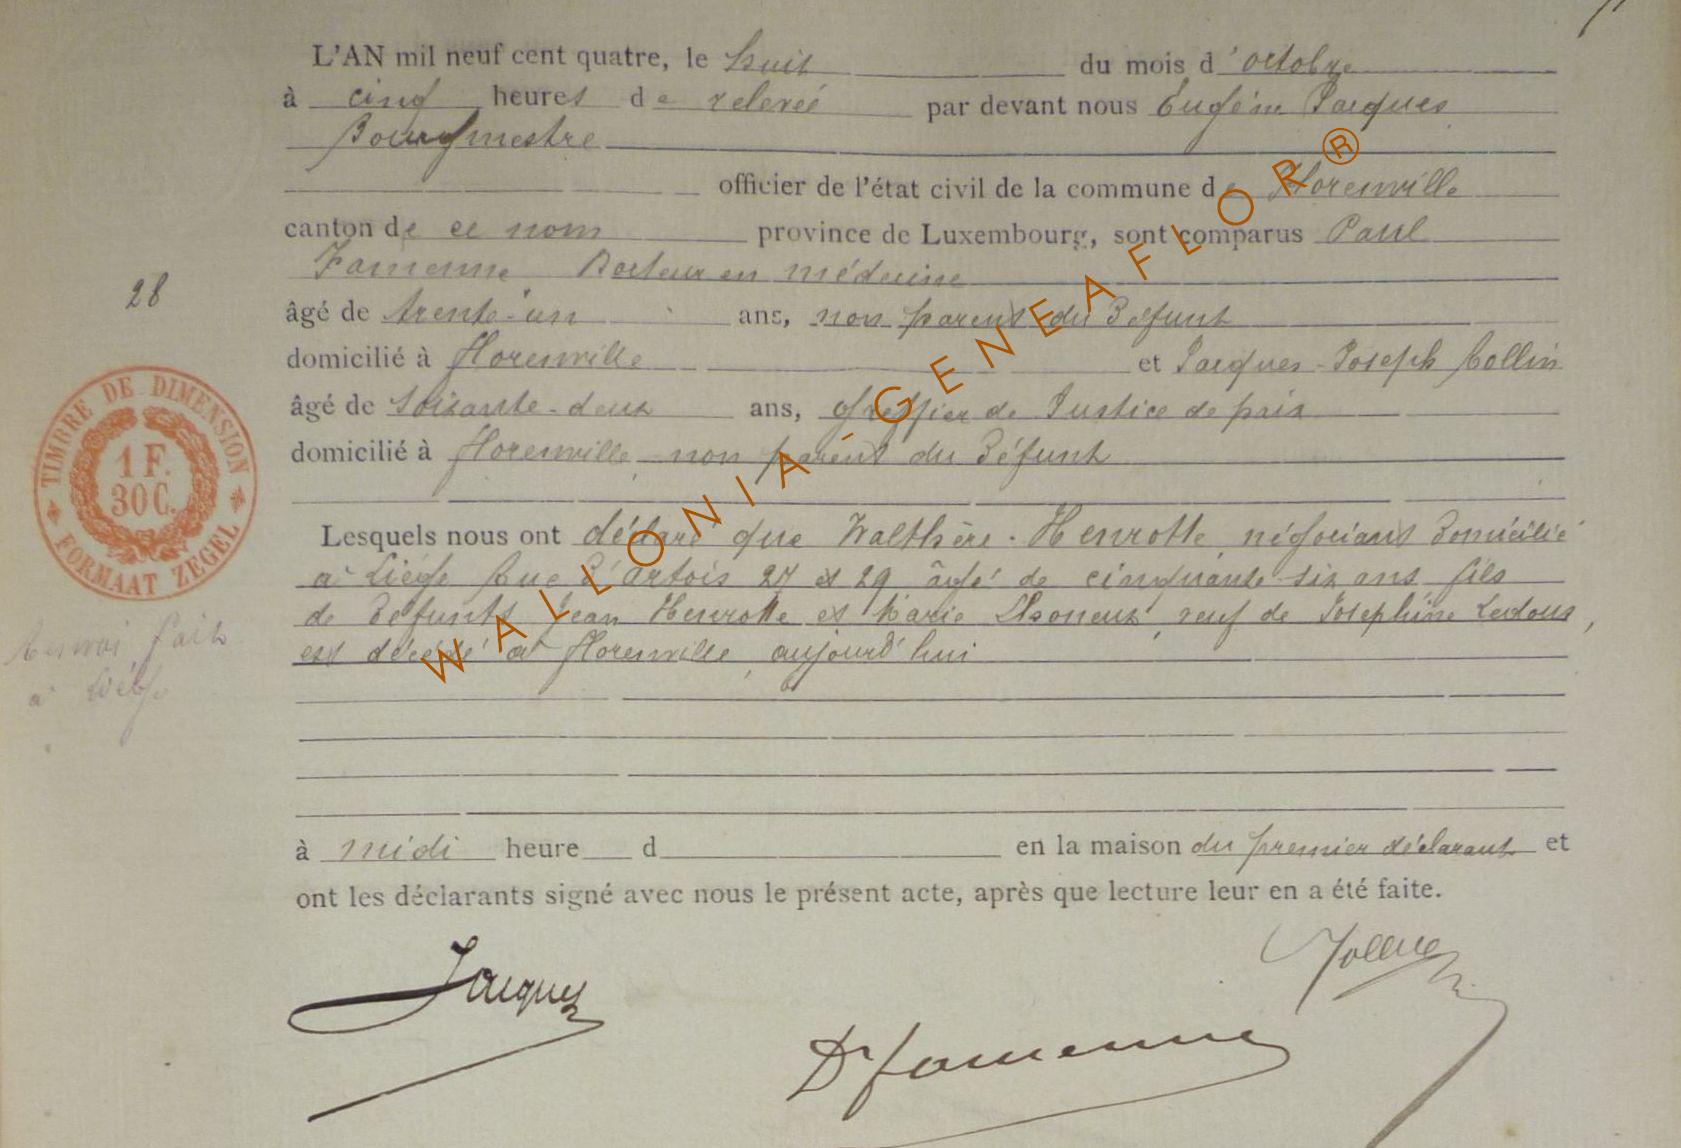 L'AN mil neuf cent quatre, le huit du mois d'octobre
à cinq heures de relevée par devant nous Eugène Jacques
Bourgmestre
officier de l'état civil de la commune de Florenville
canton de ce nom province de Luxembourg, sont comparus Paul
Famenne Docteur en médecine
28
âgé de trente-un ans, non parent du Défunt
domicilié à Florenville et Jacques-Joseph Collin
âgé de soixante-deux ans, Greffier de Justice de paix
domicilié à Florenville, non parent du Défunt
TIMBRE DE DIMENSION
1 F.
30 C.
FORMAAT ZEGEL
Lesquels nous ont déclaré que Walthère-Henrotte négociant domicilié
à Liége Rue d'Artois 27 et 29 âgé de cinquante-six ans fils
de Défunts Jean Henrotte et Marie veuf de Josephine Ledoux,
est décédé à Florenville, aujourd'hui
Renvoi fait
à Liége
à midi heure d en la maison du premier déclarant et
ont les déclarants signé avec nous le présent acte, après que lecture leur en a été faite.
Jacques
Collin
Dr Famenne
WALLONIA-GENEAFLOR®